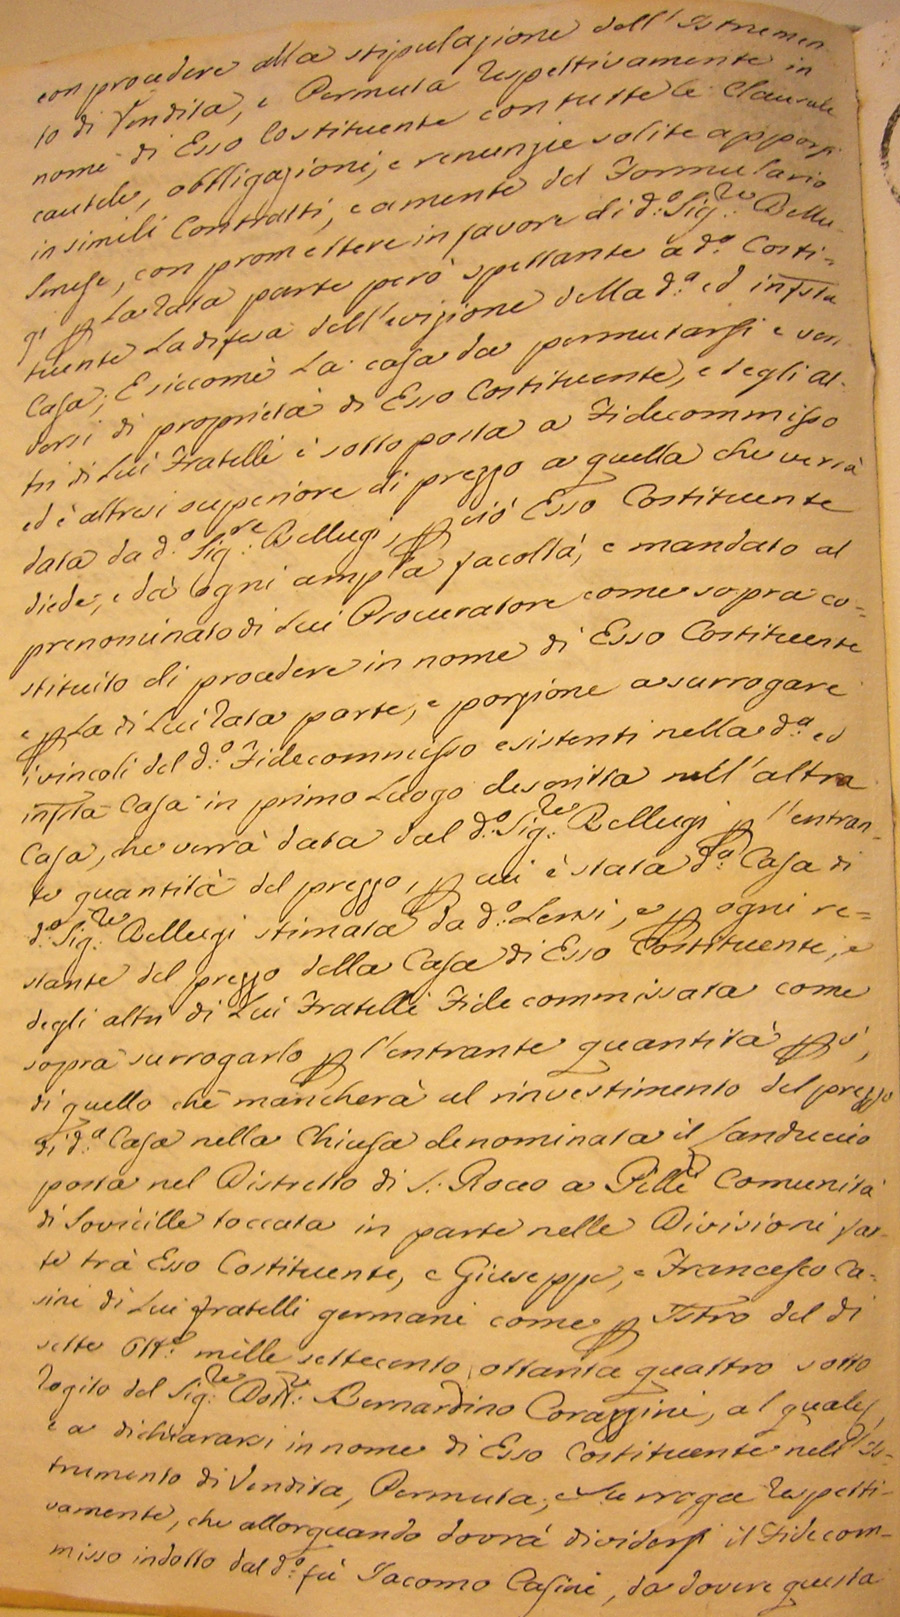 con procedere alla stipulazione dell'Istrumen
to di Vendita, e Permuta respettivamente in
nome di Esso Costituente con tutte le Clausule
cautele, obbligazioni, e renunzie solite apporsi
in simili Contratti, e a mente del Formulario
Senese, con promettere in favore di d:º Sig:re Bellu-
gi p La rata parte però spettante a d:º Costi-
tuente La difesa dell'evizione della d:ª ed infrta
Casa; E siccome La casa da permutarsi e ven
dersi di proprietà di Esso Costituente, e degli al-
tri di Lui Fratelli è sotto posta a Fidecommisso
ed è altresi superiore di prezzo a quella che verrà
data da d:º Sig:re Bellugi, p ciò Esso Costituente
diede, e dà ogni ampla facoltà, e mandato al
prenominato di Lui Procuratore come sopra co-
stituito di procedere in nome di Esso Costituente
e p La di Lui rata parte, e porzione a surrogare
i vincoli del d:º Fidecommisso esistenti nella d:ª ed
infrta Casa in primo Luogo descritta nell'altra
Casa, che verrà data dal d:º Sig:re Bellugi p l'entran-
te quantità del prezzo, p cui è stata d:ª Casa di
d:º Sig:re Bellugi stimata da d:º Lensi, e p ogni re=
stante del prezzo della Casa di Esso Costituente, e
degli altri di Lui Fratelli Fidecommissata come
sopra surrogarlo p l'entrante quantità p ò,
di quello che mancherà al rinvestimento del prezzo
di d:ª Casa nella Chiusa denominata il Sanduccio
posta nel Distretto di S: Rocco a Pilli Comunità
di Sovicille toccata in parte nelle Divisioni fat-
te trà Esso Costituente, e Giuseppe, e Francesco Ca-
sini di Lui fratelli germani come p Istro del di
sette Ott:e mille settecento ottanta quattro sotto
rogito del Sig:re Dott:re Bernardino Corazzini, al quale,
e a dichiararsi in nome di Esso Costituente nell'Is-
trumento di Vendita, Permuta, e Surroga respetti-
vamente, che allorquando dovrà dividersi il Fidecom-
misso indotto dal d:º fù Jacomo Casini, da dovere questa